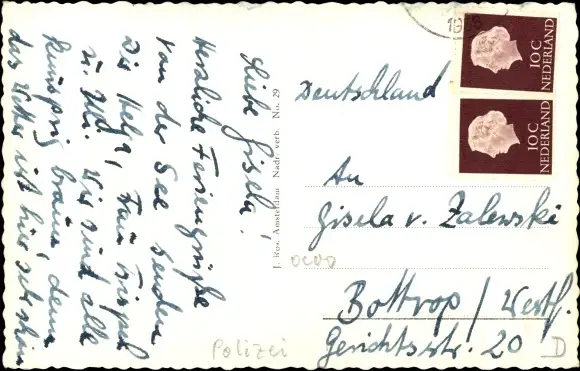 Liebe Gisela!
Herzliche Feriengrüße
von der See senden
Dir Helga, Frau
u. Ulli. Wir sind alle
braun, denn
das Wetter ist hier sehr schön
J. Ros. Amsterdam Nadr. verb. No. 29
1956
10C
NEDERLAND
10C
NEDERLAND
Deutschland
An
Gisela v. Zalewski
Bottrop / Westf.
Gerichtsstr. 20
Polizei
D